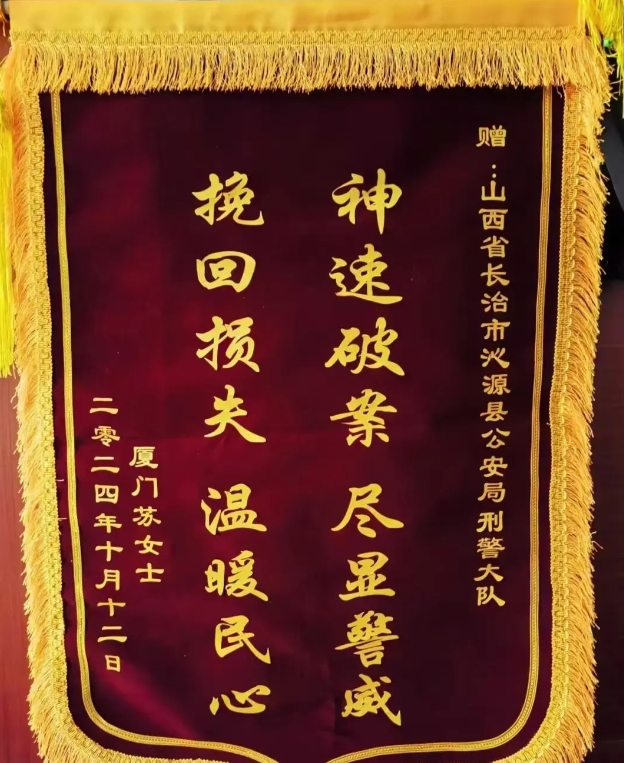 赠：山西省长治市沁源县公安局刑警大队
神速破案 尽显警威
挽回损失 温暖民心
厦门苏女士
二零二四年十月十二日